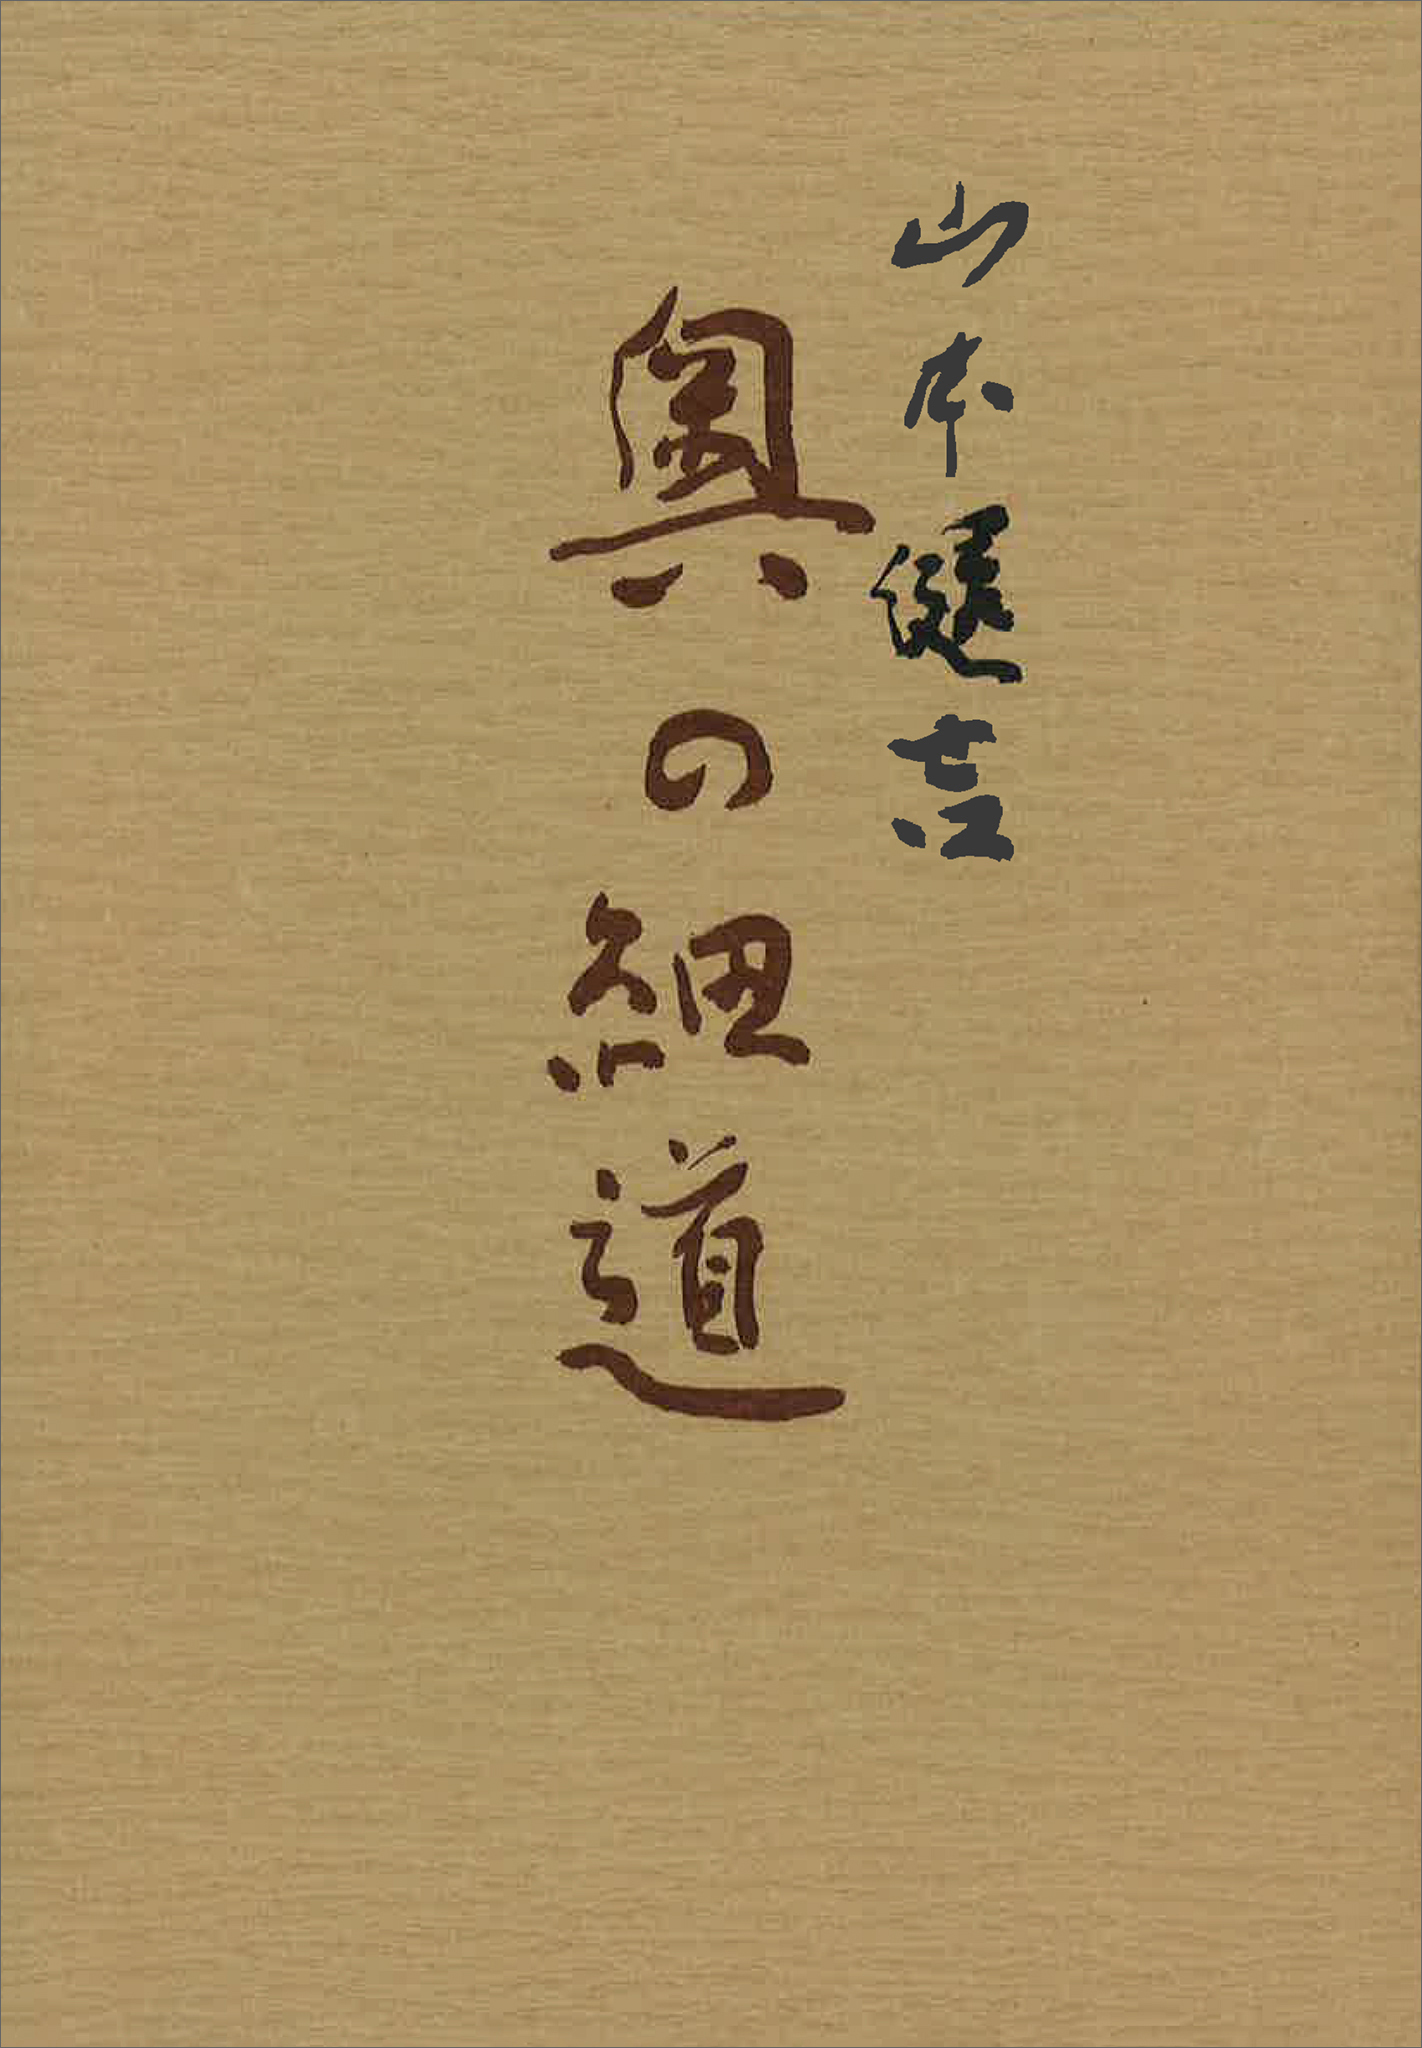 山本健吉
奥の細道